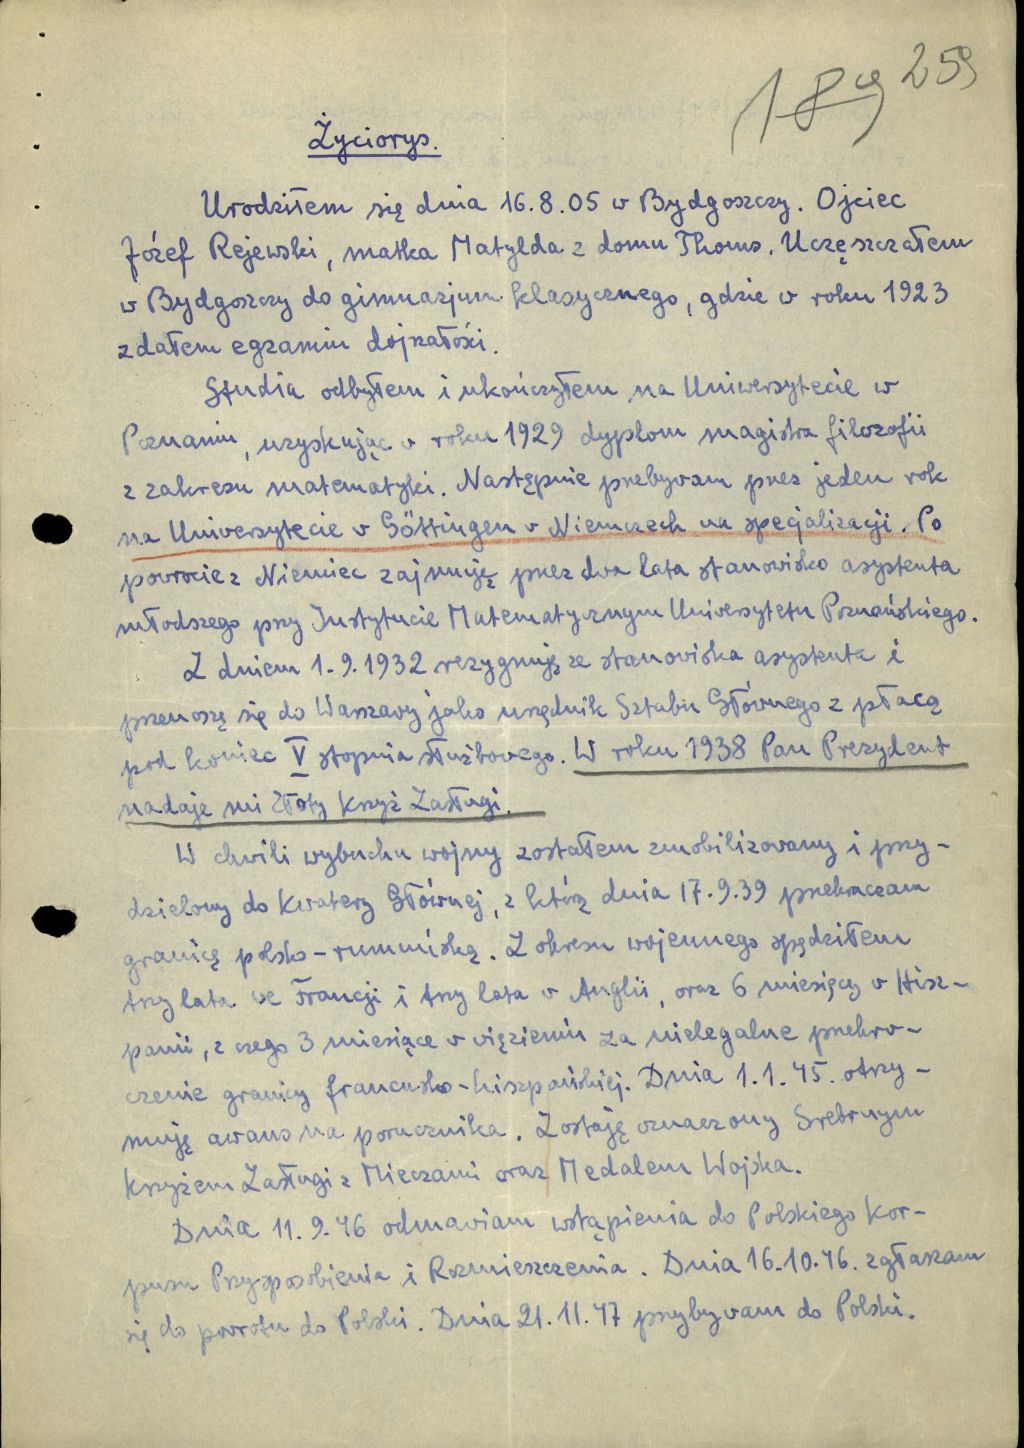 189 259
Życiorys.
Urodziłem się dnia 16.8.05 w Bydgoszczy. Ojciec
Józef Rejewski, matka Matylda z domu Thoms. Uczęszczałem
w Bydgoszczy do gimnazjum klasycznego, gdzie w roku 1923
zdałem egzamin dojrzałości.
Studia odbyłem i ukończyłem na Uniwersytecie w
Poznaniu, uzyskując w roku 1929 dyplom magistra filozofii
z zakresu matematyki. Następnie przebywam przez jeden rok
na Uniwersytecie w Göttingen w Niemczech na specjalizacji. Po
powrocie z Niemiec zajmuję przez dwa lata stanowisko asystenta
młodszego przy Instytucie Matematycznym Uniwersytetu Poznańskiego.
Z dniem 1.9.1932 rezygnuję ze stanowiska asystenta i
przenoszę się do Warszawy jako urzędnik Sztabu Głównego z płacą
pod koniec V stopnia służbowego. W roku 1938 Pan Prezydent
nadaje mi Złoty Krzyż Zasługi.
W chwili wybuchu wojny zostałem zmobilizowany i przy-
dzielony do Kwatery Głównej, z którą dnia 17.9.39 przekraczam
granicę polsko-rumuńską. Z okresu wojennego spędziłem
trzy lata we Francji i trzy lata w Anglii, oraz 6 miesięcy w Hisz-
panii, z czego 3 miesiące w więzieniu za nielegalne przekro-
czenie granicy francusko-hiszpańskiej. Dnia 1.1.45. otrzy-
muję awans na porucznika. Zostaję oznaczony Srebrnym
Krzyżem Zasługi z Mieczami oraz Medalem Wojska.
Dnia 11.9.46 odmawiam wstąpienia do Polskiego Kor-
pusu Przysposobienia i Rozmieszczenia. Dnia 16.10.46. zgłaszam
się do powrotu do Polski. Dnia 21.11.47 przybywam do Polski.